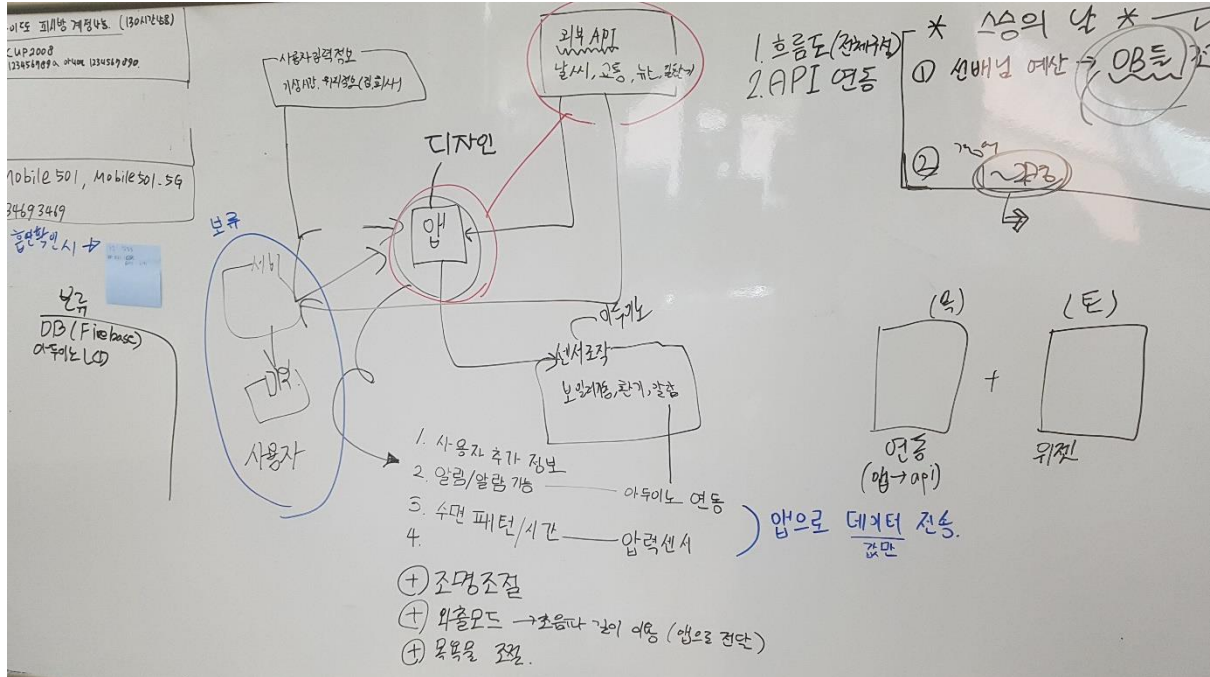 피시방 계정4개. (130시간
CUP2008
Mobile 501, Mobile501-5G
34693469
흡연확인시 →
보류
DB (Firebase)
아두이노 LCD
사용자입력정보
기상시간, 위치정보(집,회사)
외부 API
날씨, 교통, 뉴스,
디자인
앱
보류
서비
사용자
아두이노
센서조작
보일러작동, 환기, 알람
1. 사용자 추가 정보
2. 알림/알람 기능 아두이노 연동
3. 수면 패턴/시간 압력센서
4.
앱으로 데이터 전송.
값만
+ 조명조절
+ 외출모드 → 초음파 길이 이용 (앱으로 전달)
+ 목욕물 조절.
1. 흐름도(전체구성)
2. API 연동
* 스승의 날 *
① 선배님 예산 → OB들
②
(목)
+
(토)
연동
(앱→api)
위젯